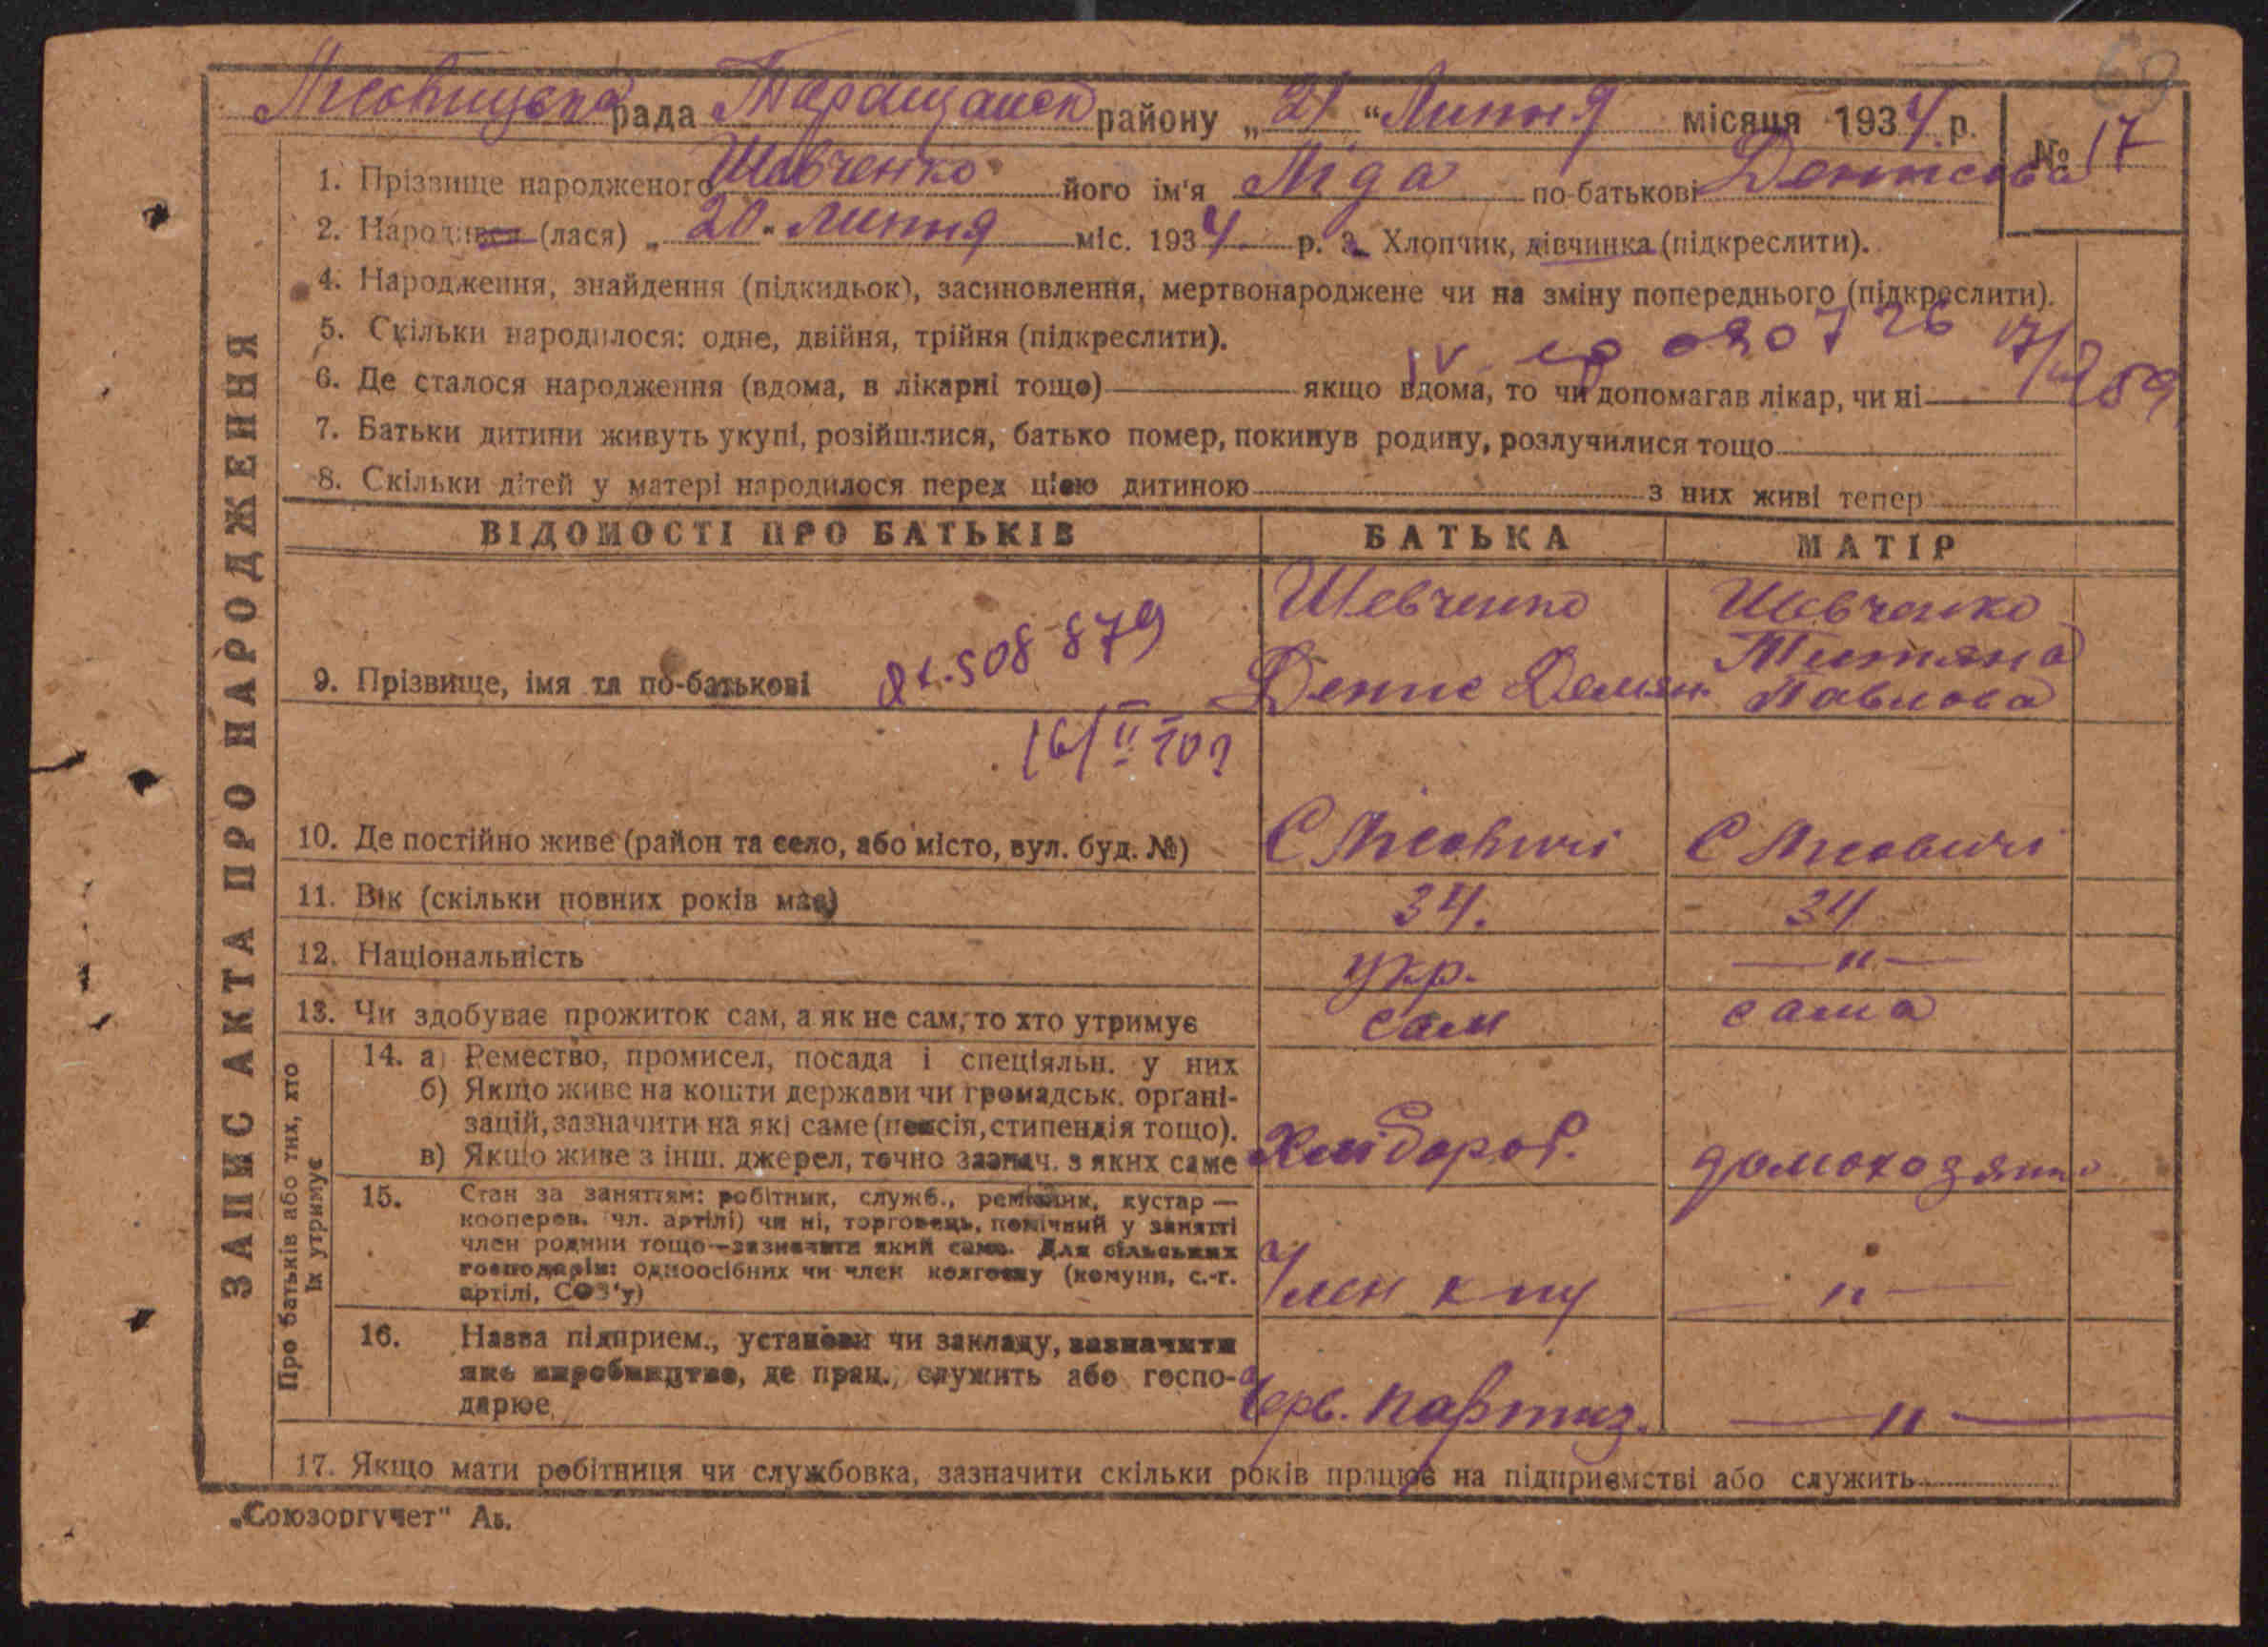 69
Лісовицька рада Таращанськ району „21“ Липня місяця 1934 р. № 17
1. Прізвище народженого Шевченко його ім'я Ліда по-батькові Денисова
2. Народився (лася) „20“ липня міс. 1934 р. 3. Хлопчик, дівчинка (підкреслити).
4. Народження, знайдення (підкидьок), засиновлення, мертвонароджене чи на зміну попереднього (підкреслити).
5. Скільки народилося: одне, двійня, трійня (підкреслити).
6. Де сталося народження (вдома, в лікарні тощо) якщо вдома, то чи допомагав лікар, чи ні
7. Батьки дитини живуть укупі, розійшлися, батько помер, покинув родину, розлучилися тощо
8. Скільки дітей у матері народилося перед цією дитиною з них живі тепер
ЗАПИС АКТА ПРО НАРОДЖЕННЯ
ВІДОМОСТІ ПРО БАТЬКІВ БАТЬКА МАТІР
9. Прізвище, імя та по-батькові Шевченко Денис Демян. Шевченко Титяна Павлова
508 879
10. Де постійно живе (район та село, або місто, вул. буд. №) С Лісовичі С Лісовичі
11. Вік (скільки повних років має) 34. 34
12. Національність укр. —"—
13. Чи здобуває прожиток сам, а як не сам, то хто утримує сам сама
Про батьків або тих, хто їх утримує
14. а) Ремество, промисел, посада і спеціяльн. у них
б) Якщо живе на кошти держави чи громадськ. органі-
зацій, зазначити на які саме (пенсія, стипендія тощо).
в) Якщо живе з інш. джерел, точно зазнач. з яких саме Хлібороб.
15. Стан за заняттям: робітник, служб., ремісник, кустар —
кооперов. чл. артілі) чи ні, торговець, помічний у занятті
член родини тощо—зазначити який саме. Для сільських
господарів: одноосібних чи член колгоспу (комуни, с.-г.
артілі, СОЗ'у) Член к —"—
16. Назва підприєм., установи чи закладу, зазначити
яке виробництво, де прац., служить або госпо-
дарює Черв. партиз. —"—
17. Якщо мати робітниця чи службовка, зазначити скільки років працює на підприємстві або служить
„Союзоргучет"